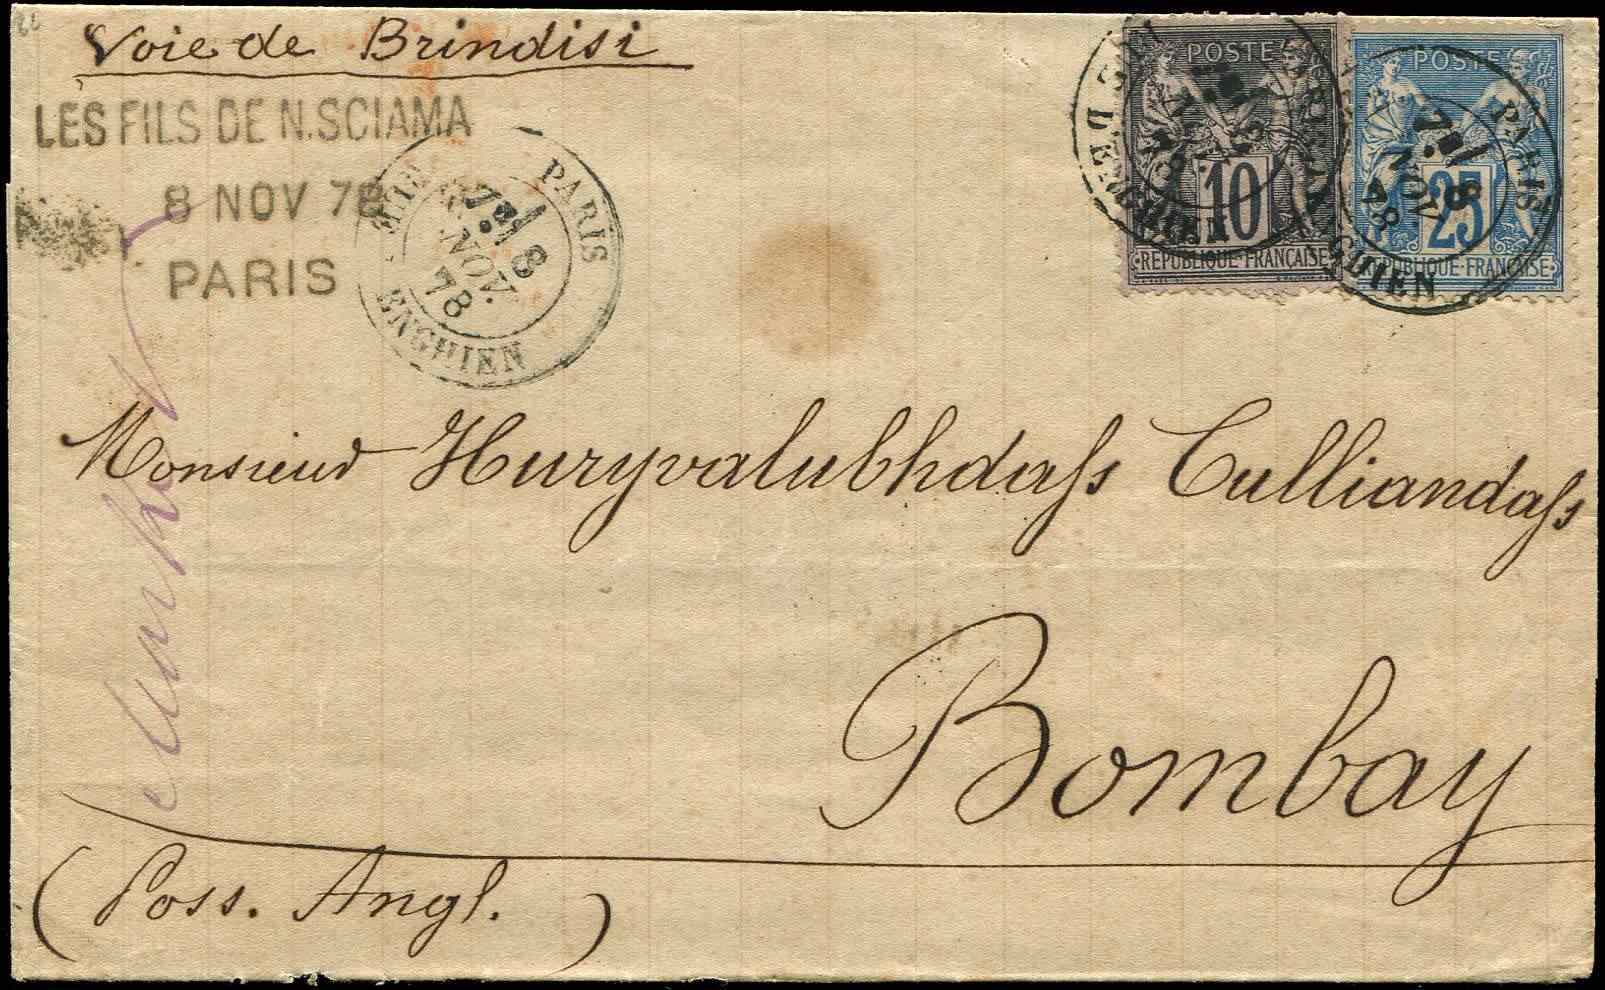 Voie de Brindisi
LES FILS DE N. SCIAMA
8 NOV 78
PARIS
PARIS
7E
8
NOV.
78
ENGHIEN
POSTE
10
REPUBLIQUE-FRANÇAISE
POSTE
25
REPUBLIQUE-FRANÇAISE
PARIS
7E
8
NOV
78
ENGHIEN
Monsieur Huryvalubhdass Culliandass
Bombay
(Poss. Angl.)